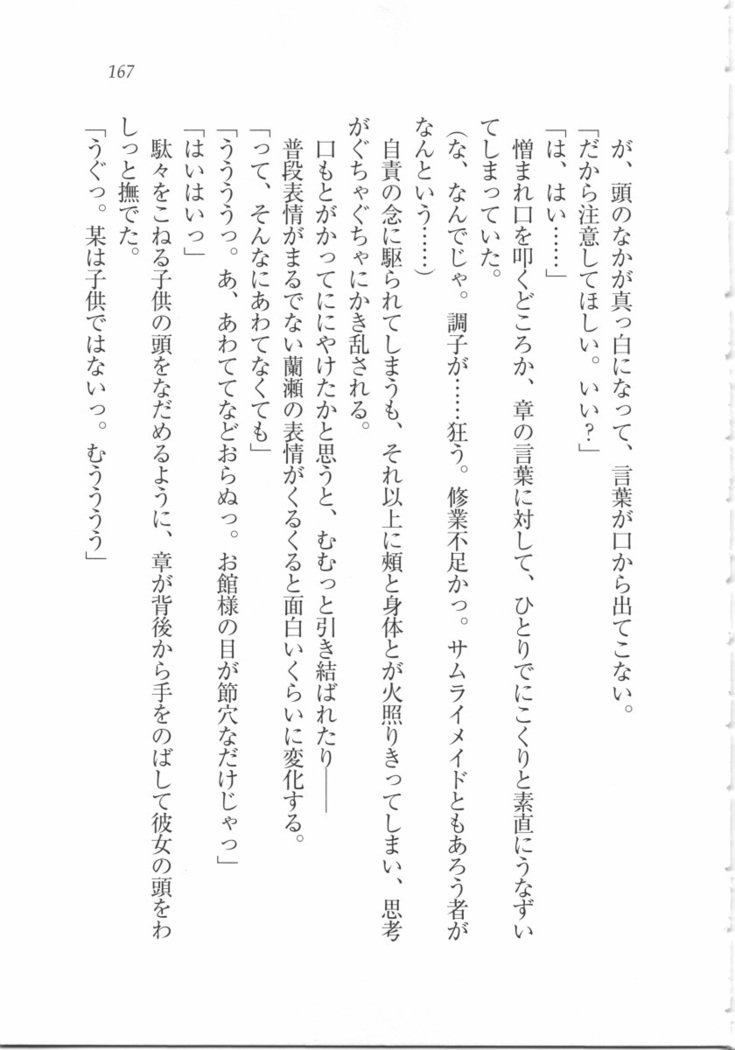 167
が、頭のなかが真っ白になって、言葉が口から出てこない。
「だから注意してほしい。いい？」
「は、はい……」
憎まれ口を叩くどころか、章の言葉に対して、ひとりでにこくりと素直にうなずい
てしまっていた。
（な、なんでじゃ。調子が……狂う。修業不足かっ。サムライメイドともあろう者が
なんという……）
自責の念に駆られてしまうも、それ以上に頰と身体とが火照りきってしまい、思考
がぐちゃぐちゃにかき乱される。
口もとがかってににやけたかと思うと、むむっと引き結ばれたり――
普段表情がまるでない蘭瀬の表情がくるくると面白いくらいに変化する。
「って、そんなにあわてなくても」
「ううううっ。あ、あわててなどおらぬっ。お館様の目が節穴なだけじゃっ」
「はいはいっ」
駄々をこねる子供の頭をなだめるように、章が背後から手をのばして彼女の頭をわ
しっと撫でた。
「うぐっ。某は子供ではないっ。むうううう」